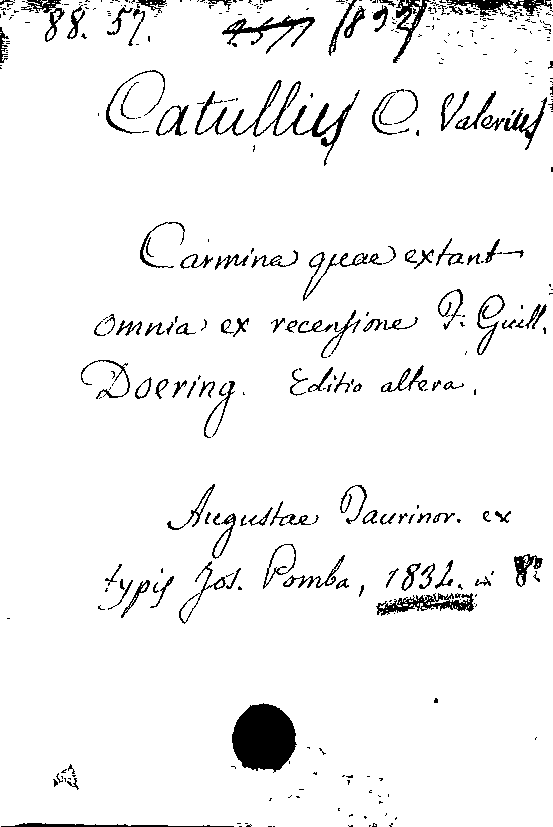 88. 57. (832)
Catullus C. Valerius
Carmina quae extant
omnia ex recensione F. Guill.
Doering. Editio altera.
Augustae Taurinor. ex
typis Jos. Pomba, 1832. in 8º